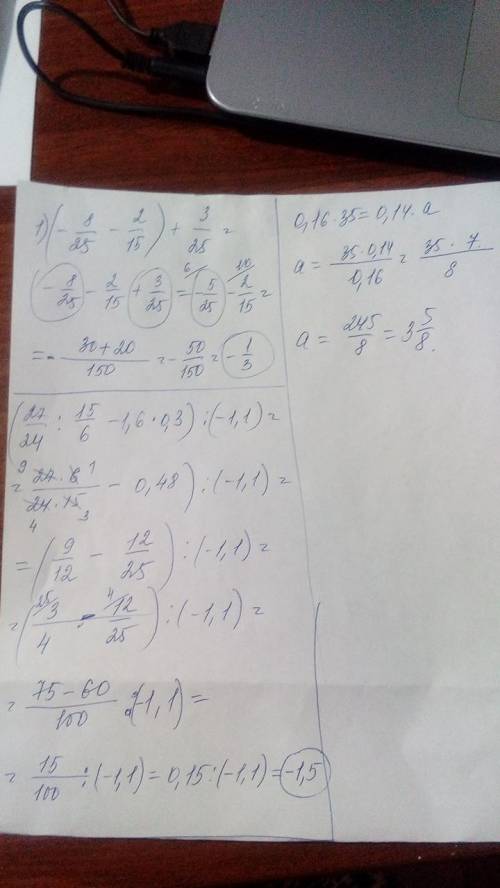 1) (- 8/25 - 2/15) + 3/25 =
(- 8/25 - 2/15 + 3/25 = 6/ 5/25 - 10/ 2/15 =
= - 30+20/150 = - 50/150 = - 1/3
(27/24 : 15/6 - 1,6 · 0,3) : (-1,1) =
= 9 27·6 1/24·15 4 3 - 0,48) : (-1,1) =
= (9/12 - 12/25) : (-1,1) =
= (25/ 3/4 - 4/ 12/25) : (-1,1) =
= 75-60/100 : (-1,1) =
= 15/100 : (-1,1) = 0,15 : (-1,1) = -1,5
0,16·35=0,14·a
a = 35·0,14/0,16 = 35·7/8
a = 245/8 = 3 5/8.